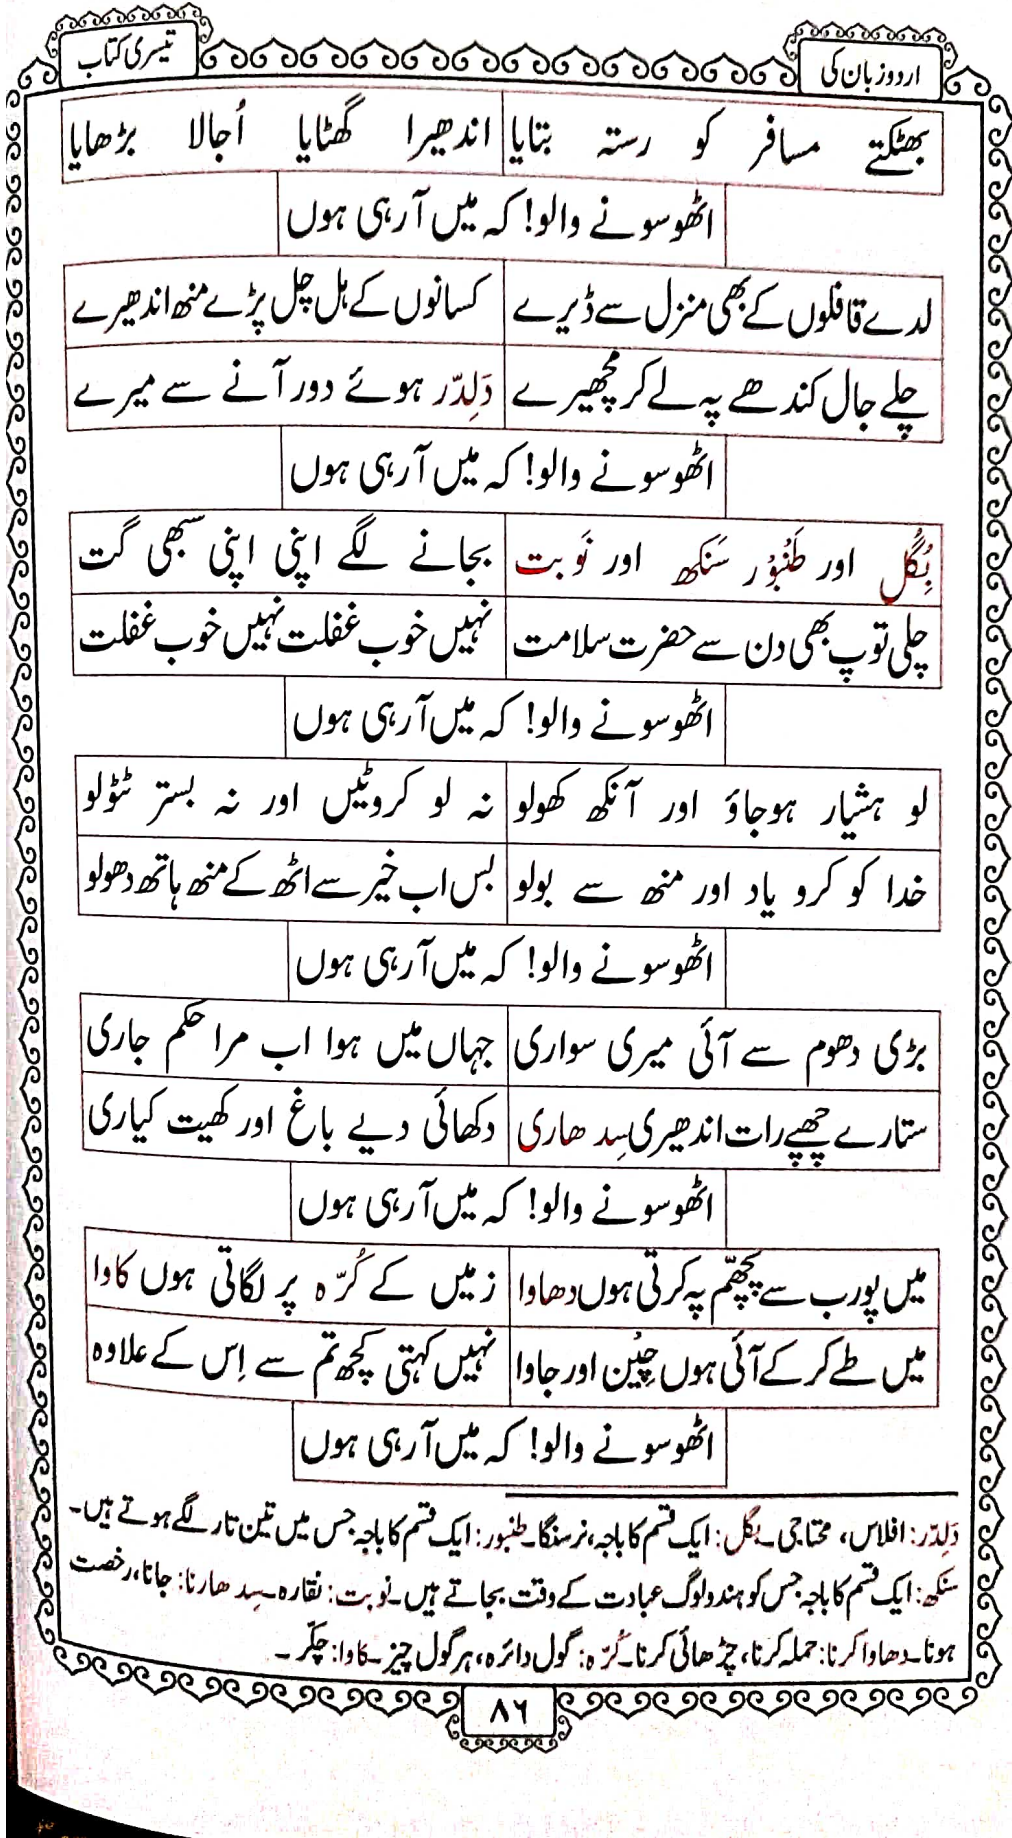 اردو زبان کی تیسری کتاب
بھٹکتے مسافر کو رستہ بتایا اندھیرا گھٹایا اُجالا بڑھایا
اٹھو سونے والو! کہ میں آرہی ہوں
لدے قافلوں کے بھی منزل سے ڈیرے کسانوں کے ہل چل پڑے منھ اندھیرے
چلے جال کندھے پہ لے کر مچھیرے دَلِدّر ہوئے دور آنے سے میرے
اٹھو سونے والو! کہ میں آرہی ہوں
بِگُل اور طَنبُوْر سَنکھ اور نَوبت بجانے لگے اپنی اپنی سبھی گت
چلی توپ بھی دن سے حضرت سلامت نہیں خوب غفلت نہیں خوب غفلت
اٹھو سونے والو! کہ میں آرہی ہوں
لو ہشیار ہوجاؤ اور آنکھ کھولو نہ لو کروٹیں اور نہ بستر ٹٹولو
خدا کو کرو یاد اور منھ سے بولو بس اب خیر سے اٹھ کے منھ ہاتھ دھولو
اٹھو سونے والو! کہ میں آرہی ہوں
بڑی دھوم سے آئی میری سواری جہاں میں ہوا اب مرا حکم جاری
ستارے چھپے رات اندھیری سِدھاری دکھائی دیے باغ اور کھیت کیاری
اٹھو سونے والو! کہ میں آرہی ہوں
میں پورب سے پچھّم پہ کرتی ہوں دھاوا زمیں کے کُرّہ پر لگاتی ہوں کاوا
میں طے کرکے آئی ہوں چِیْن اور جاوا نہیں کہتی کچھ تم سے اِس کے علاوہ
اٹھو سونے والو! کہ میں آرہی ہوں
دَلِدّر: افلاس، محتاجی۔ بگل: ایک قسم کا باجہ، نرسنگا۔ طنبور: ایک قسم کا باجہ جس میں تین تار لگے ہوتے ہیں۔
سنکھ: ایک قسم کا باجہ جس کو ہندو لوگ عبادت کے وقت بجاتے ہیں۔ نوبت: نقارہ۔ سِدھارنا: جانا، رخصت
ہونا۔ دھاوا کرنا: حملہ کرنا، چڑھائی کرنا۔ کُرّہ: گول دائرہ، ہر گول چیز۔ کاوا: چکّر۔
۸۶